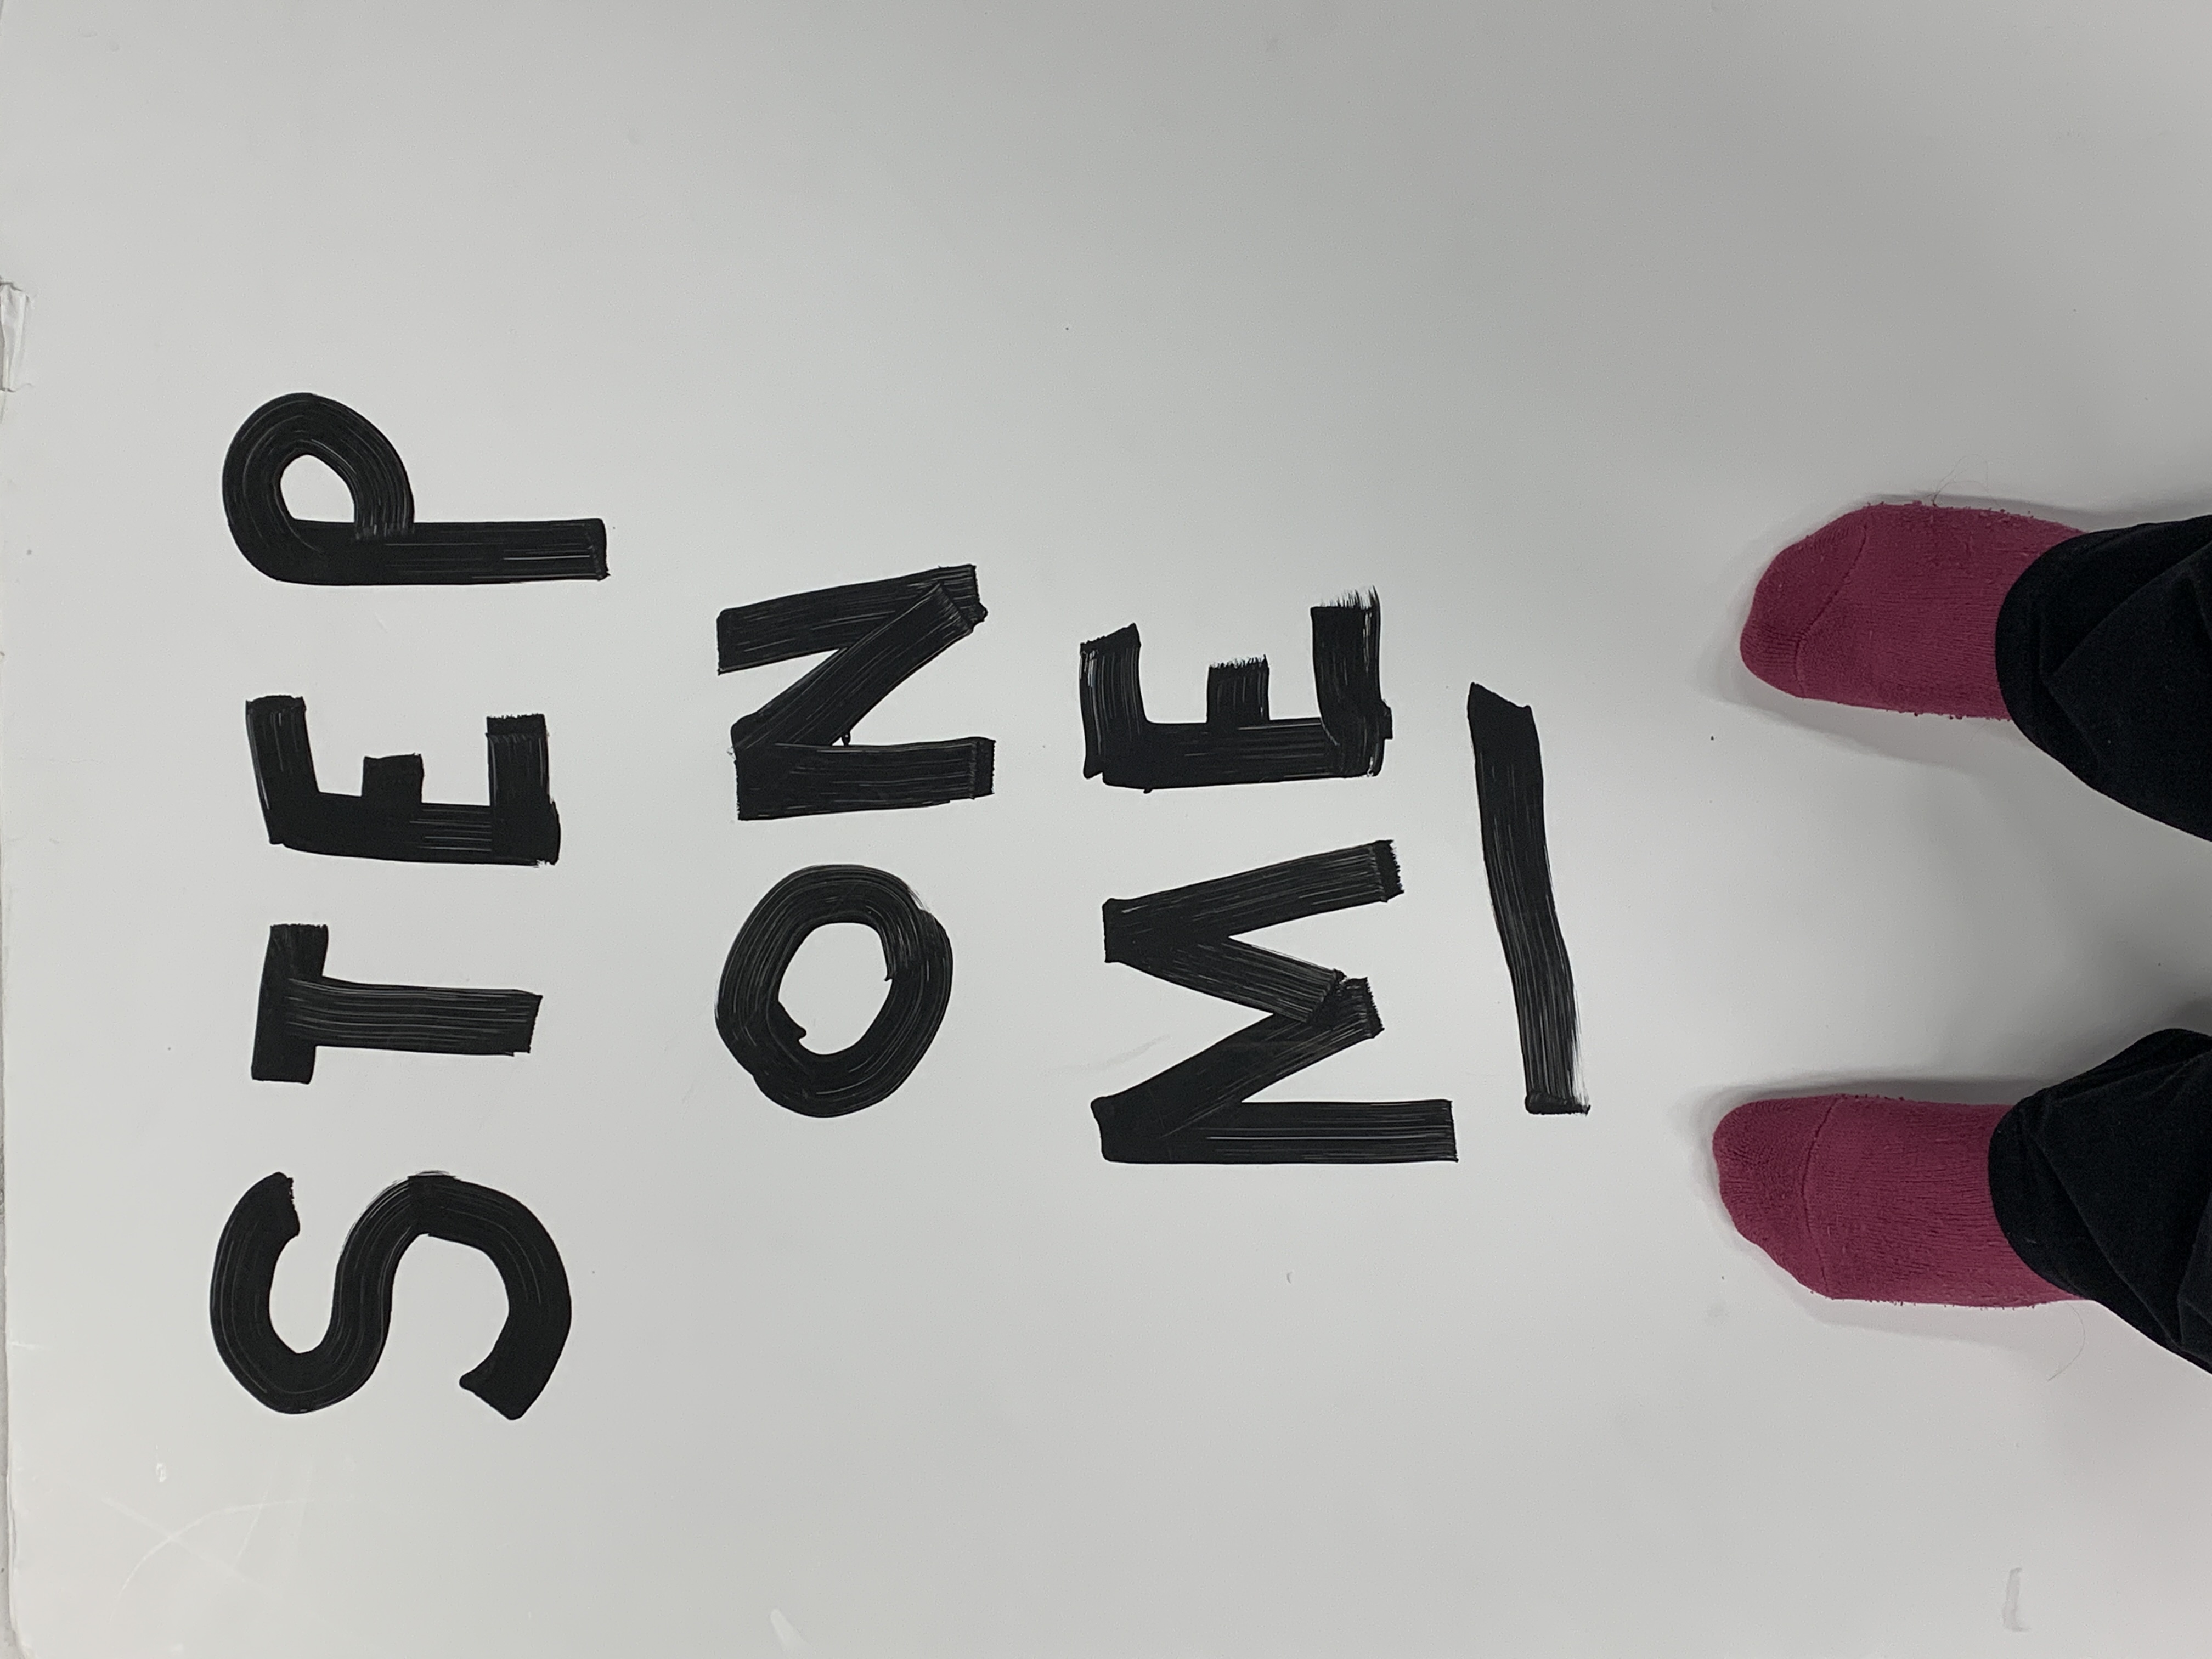 STEP
ON
ME